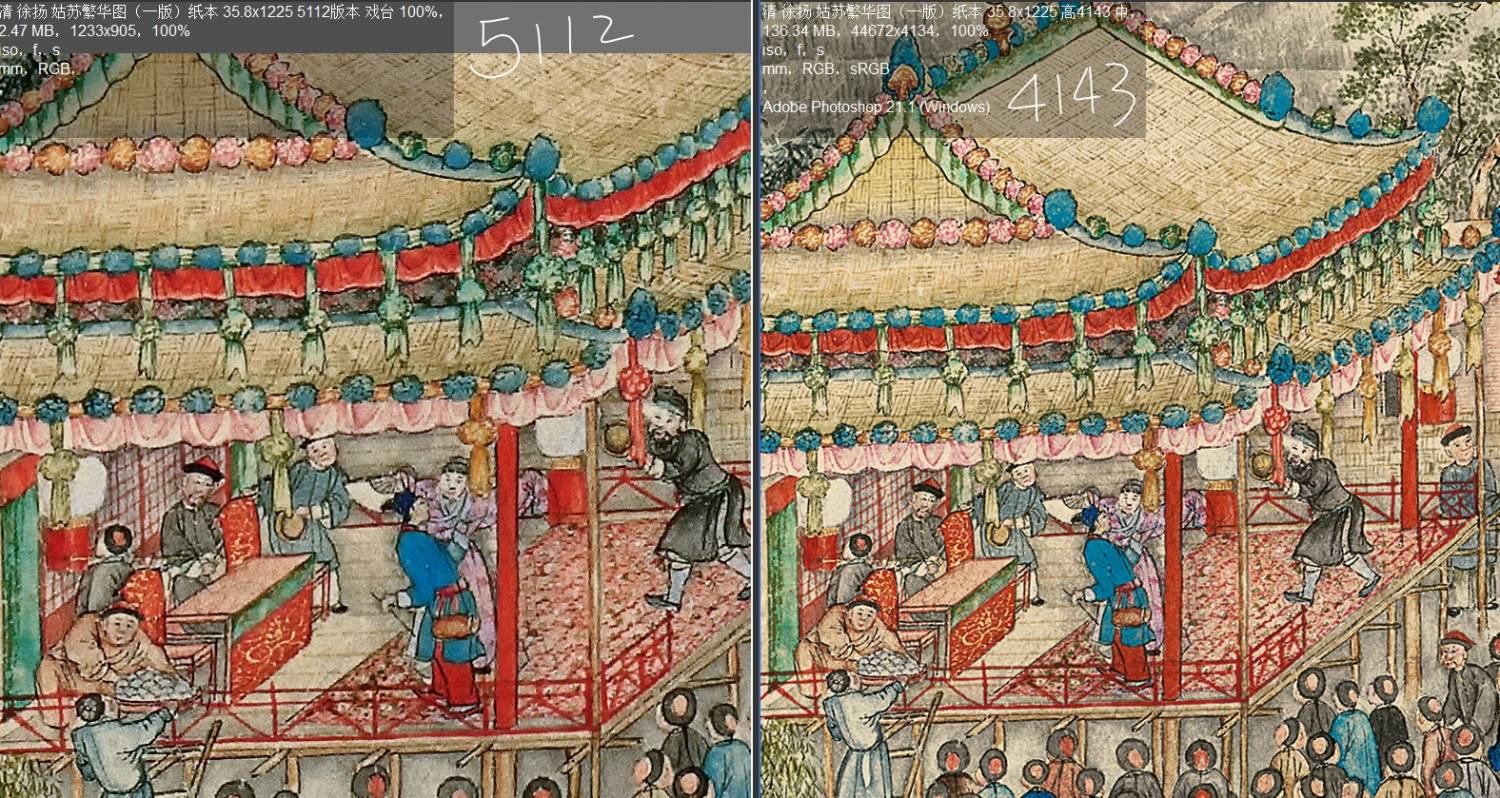 清 徐扬 姑苏繁华图（一版）纸本 35.8x1225 5112版本 戏台 100%，
2.47 MB，1233x905，100%
iso，f，s
mm，RGB，
5112
清 徐扬 姑苏繁华图（一版）纸本 35.8x1225 高4143 中，
136.34 MB，44672x4134，100%
iso，f，s
mm，RGB，sRGB
Adobe Photoshop 21.1 (Windows)
4143